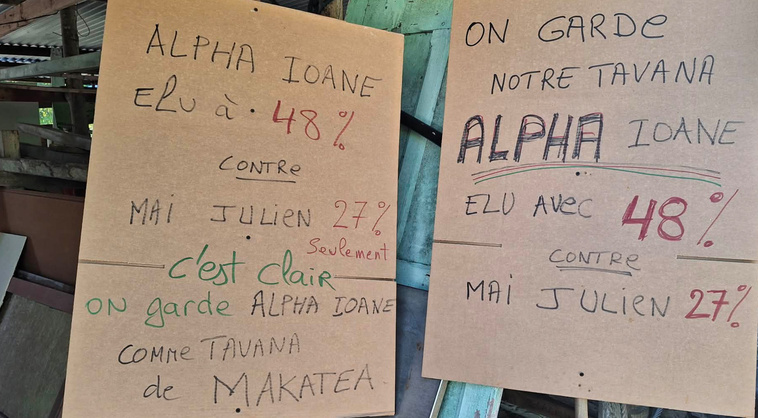 ALPHA IOANE
ELU à 48%
CONTRE
MAI JULIEN 27%
Seulement
c'est clair
ON garde ALPHA IOANE
COMME TAVANA
de MAKATEA
ON GARDE
NOTRE TAVANA
ALPHA IOANE
ELU AVEC 48%
CONTRE
MAI JULIEN 27%